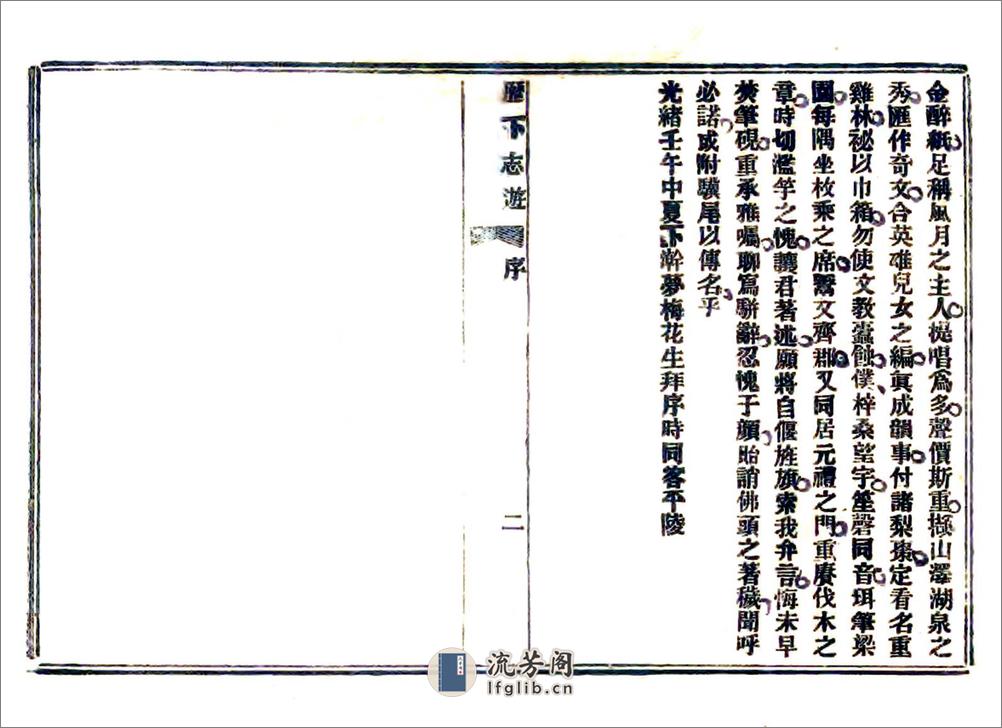 金醉紙足稱風月之主人提唱爲多聲價斯重擷山澤湖泉之
秀匯作奇文合英雄兒女之編眞成韻事付諸梨棗定看名重
雞林祕以巾箱勿使文教蠹蝕僕梓桑望宇笙磬同音珥筆梁
園每隅坐枚乘之席鬻文齊郡又同居元禮之門重賡伐木之
章時切濫竽之愧讓君著述願將自偃旌旗索我弁言悔未早
焚筆硯重承雅囑聊寫駢辭忍愧于顏貽誚佛頭之著穢聞呼
必諾或附驥尾以傳名乎
光緒壬午中夏下澣夢梅花生拜序時同客平陵
歷下志遊
序
二
流芳阁
lfglib.cn